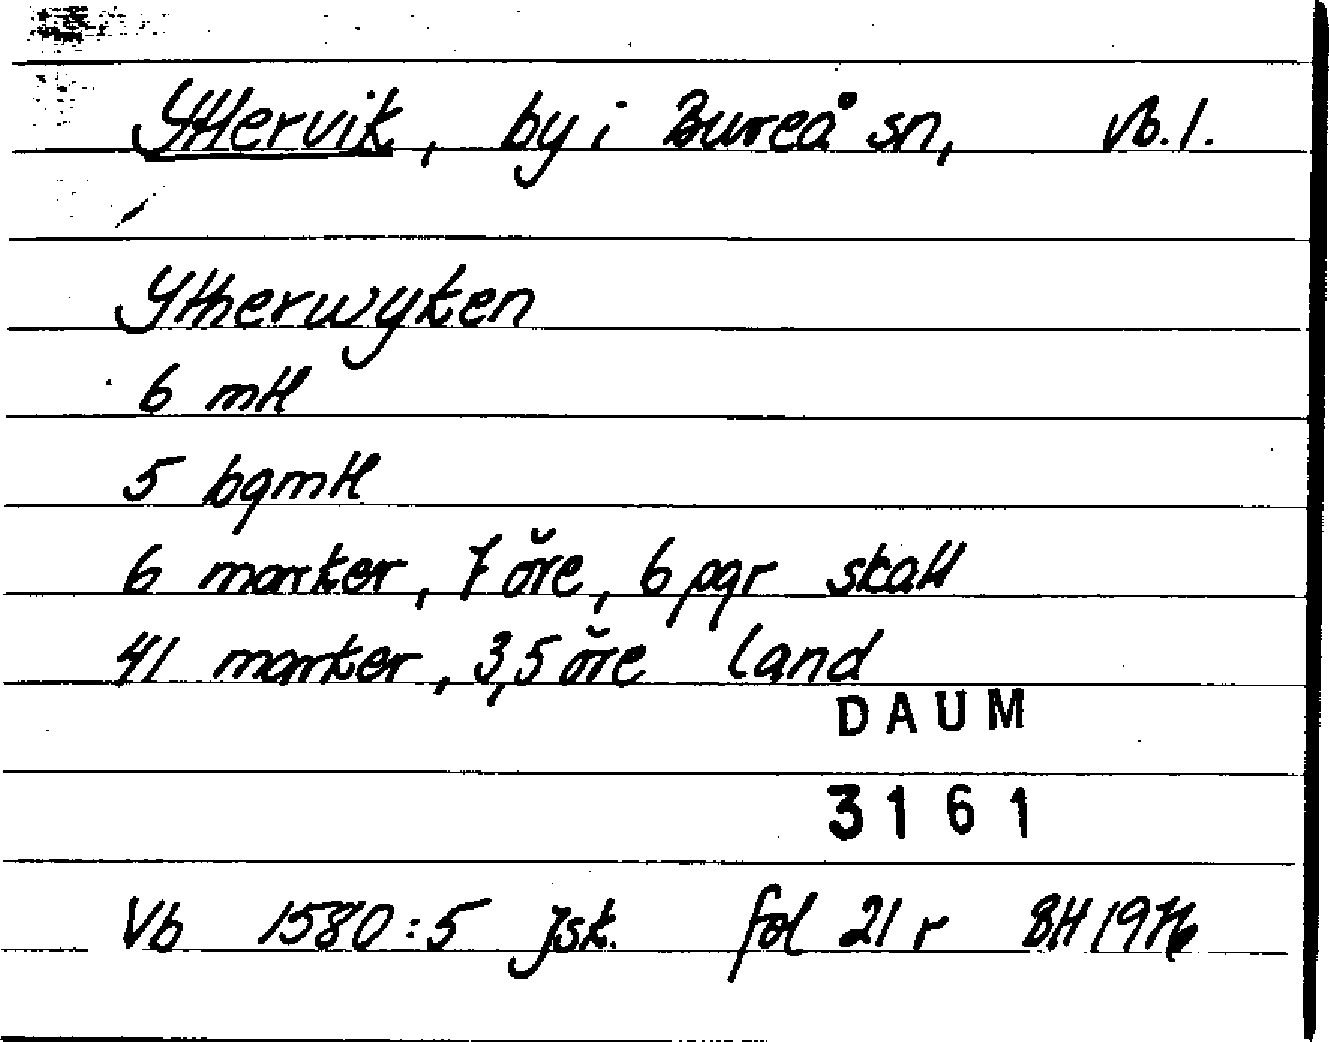 Yttervik, by i Bureå sn, Vb. l.
Ytherwyken
6 mtl
5 bgmtl
6 marker, 7 öre, 6 pgr skatt
41 marker, 3,5 öre land
DAUM
3161
Vb 1580:5 Jsk. fol 21 r BH 1976